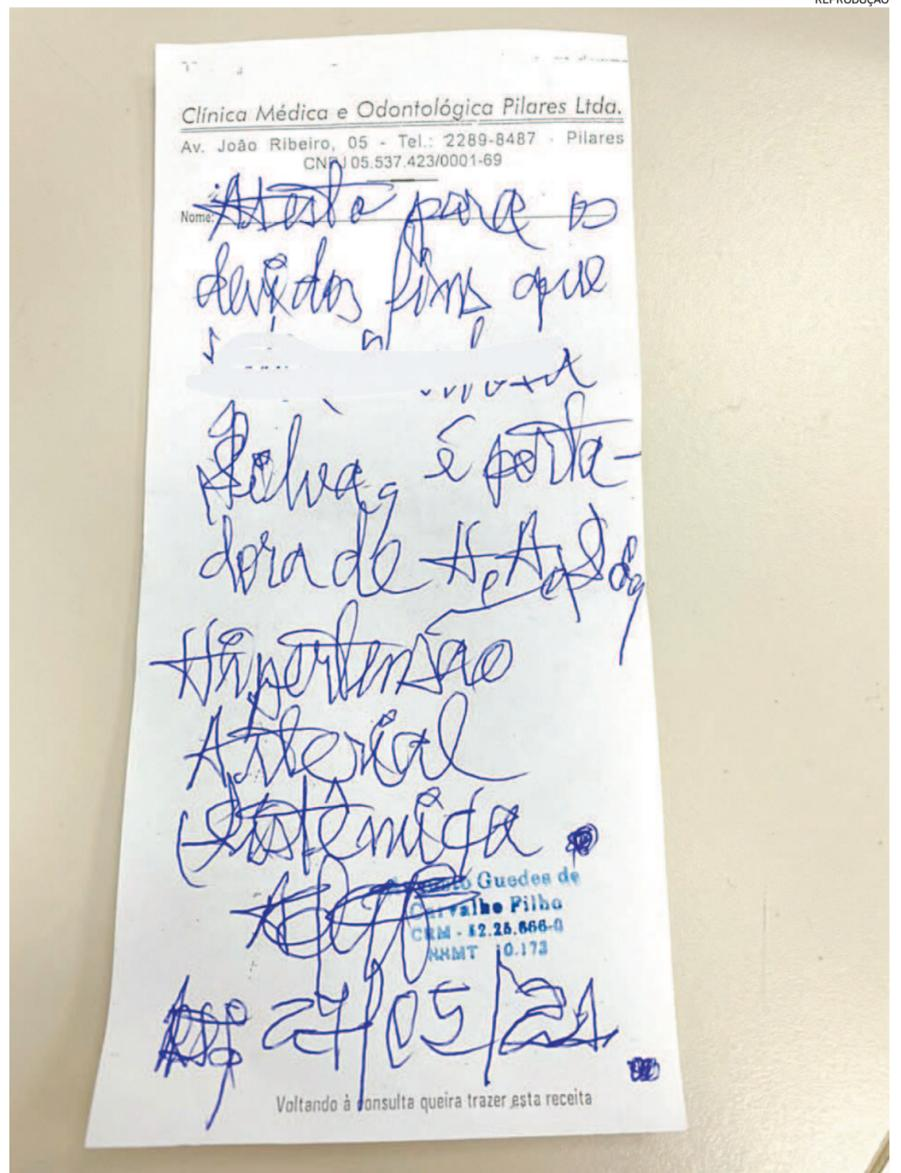 REPRODUÇÃO
Clínica Médica e Odontológica Pilares Ltda.
Av. João Ribeiro, 05 - Tel.: 2289-8487 - Pilares
CNPJ 05.537.423/0001-69
Nome:
Atesto para os
devidos fins que
Silva, é porta-
dora de H.A.S.,
Hipertensão
Arterial
Sistêmica.
Guedes de
Carvalho Filho
CRM - 52.25.666-0
10.173
27/05/21
Voltando à consulta queira trazer esta receita